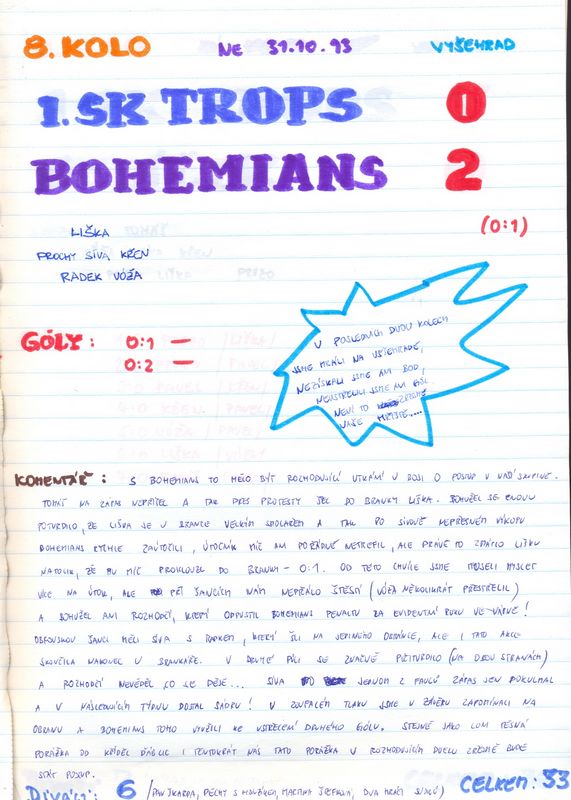 8. KOLO NE 31.10.93 VYŠEHRAD
1. SK TROPS 0
BOHEMIANS 2
(0:1)
LIŠKA
PROCHY SÍVA KŘEN
RADEK VÓŽA
GÓLY: 0:1 —
0:2 —
V POSLEDNÍCH DVOU KOLECH
JSME HRÁLI NA VYŠEHRADĚ,
NEZÍSKALI JSME ANI BOD,
NEVSTŘELILI JSME ANI GÓL.
NENÍ TO ZŘEJMĚ
NAŠE HŘIŠTĚ....
KOMENTÁŘ: S BOHEMIANS TO MĚLO BÝT ROZHODUJÍCÍ UTKÁNÍ V BOJI O POSTUP V NAŠÍ SKUPINĚ.
TOMÁŠ NA ZÁPAS NEPŘIJEL A TAK PŘES PROTESTY ŠEL DO BRANKY LIŠKA. BOHUŽEL SE ZNOVU
POTVRDILO, ŽE LIŠKA SE V BRANCE VELKÝM
A TAK PO SÍVOVĚ NEPŘESNÉM VÝKOPU
BOHEMIANS RYCHLE ZAÚTOČILI, ÚTOČNÍK MÍČ ANI POŘÁDNĚ NETREFIL, ALE PRÁVĚ TO ZMÁTLO LIŠKU
NATOLIK, ŽE MU MÍČ PROKLOUZL DO BRANKY - 0:1. OD TÉTO CHVÍLE JSME MUSELI MYSLET
VÍCE NA ÚTOK, ALE PŘI ŠANCÍCH NÁM NEPŘÁLO ŠTĚSTÍ (VÓŽA NĚKOLIKRÁT PŘESTŘELIL)
A BOHUŽEL ANI ROZHODČÍ, KTERÝ ODPUSTIL BOHEMIANS PENALTU ZA EVIDENTNÍ RUKU VE VÁPNĚ!
OBROVSKOU ŠANCI MĚLI SÍVA S RADKEM, KTEŘÍ ŠLI NA JEDINÉHO OBRÁNCE, ALE I TATO AKCE
SKONČILA NAKONEC U BRANKÁŘE. V DRUHÉ PŮLI SE ZNAČNĚ PŘITVRDILO (NA OBOU STRANÁCH)
A ROZHODČÍ NEVĚDĚL CO SE DĚJE... SÍVA PO JEDNOM Z FAULŮ ZÁPAS JEN DOKULHAL
A V NÁSLEDUJÍCÍM TÝDNU DOSTAL SÁDRU! V ZOUFALÉM TLAKU JSME V ZÁVĚRU ZAPOMÍNALI NA
OBRANU A BOHEMIANS TOHO VYUŽILI KE VSTŘELENÍ DRUHÉHO GÓLU. STEJNĚ JAKO LONI TĚSNÁ
PORÁŽKA OD KŘÍDEL ĎÁBLIC I TENTOKRÁT NÁS TATO PORÁŽKA V ROZHODUJÍCÍM DUELU ZŘEJMĚ BUDE
STÁT POSTUP.
DIVÁCI: 6 (PAN ŠKARDA, PECHY S HOLČIČKOU, MARTINA, DVA HRÁČI) CELKEM: 33